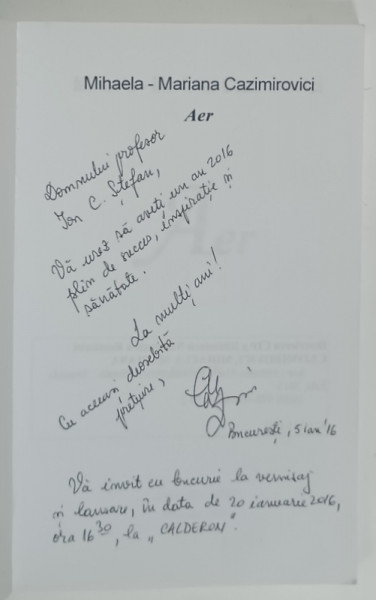 Mihaela - Mariana Cazimirovici
Aer
Domnului profesor
Ion C. Ștefan,
Vă urez să aveți un an 2016
plin de succes, inspirație și
sănătate.
La mulți ani!
Cu aceeași deosebită
prețuire,
București, 5 ian '16
Vă invit cu bucurie la vernisaj
și lansare, în data de 20 ianuarie 2016,
ora 16 30, la „CALDERON".